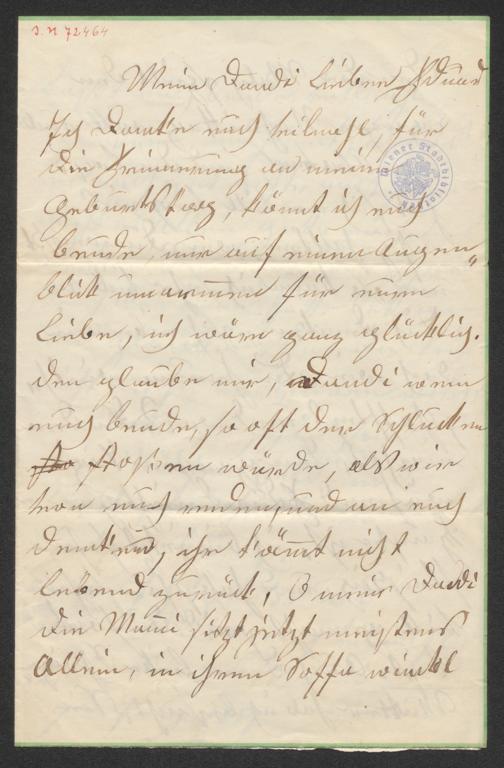 J. N 72464
Mein Dandi Lieber Eduard
Ich danke euch teilmahl, für
die Erinnerung an meinen
Geburtstag, könnt ich euch
beude, nur auf einen Augen„
blick umarmen für eure
Liebe, ich wäre ganz glücklich.
den glaube mir, Dandi wenn
euch beude, so oft der Schlucken
stoßen würde, als wir
von euch reden, und an euch
denken, ihr kämt nicht
lebend zurück, O mein Dandi
die Mami sitzt jetzt meistens
Allein, in ihrem Soffa winkl
Wiener Stadtbibliothek